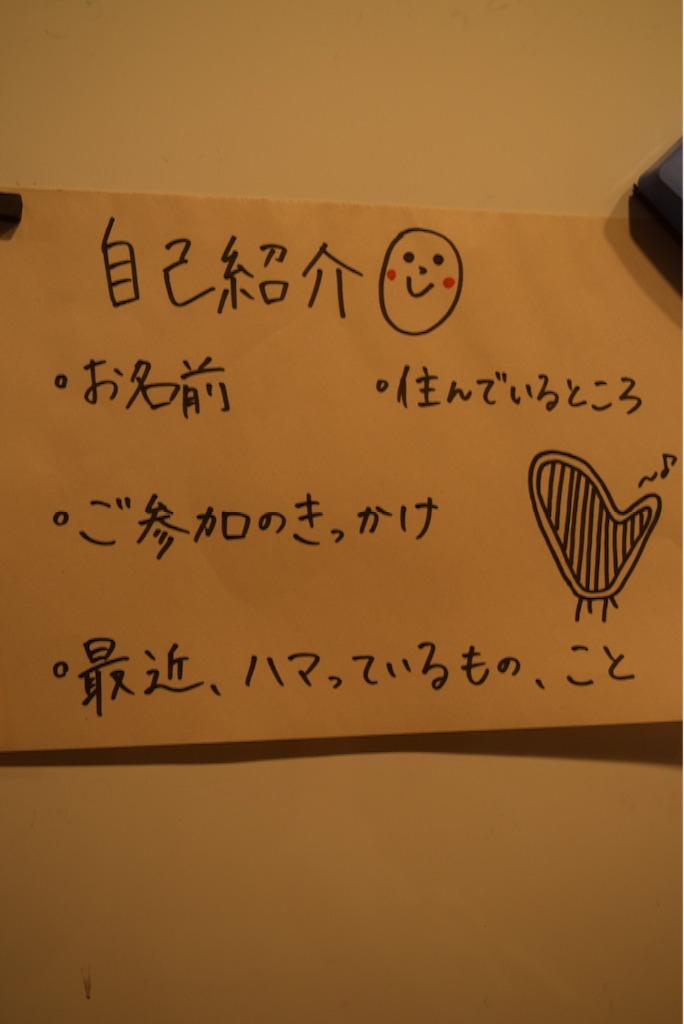 自己紹介
・お名前 ・住んでいるところ
・ご参加のきっかけ
・最近、ハマっているもの、こと